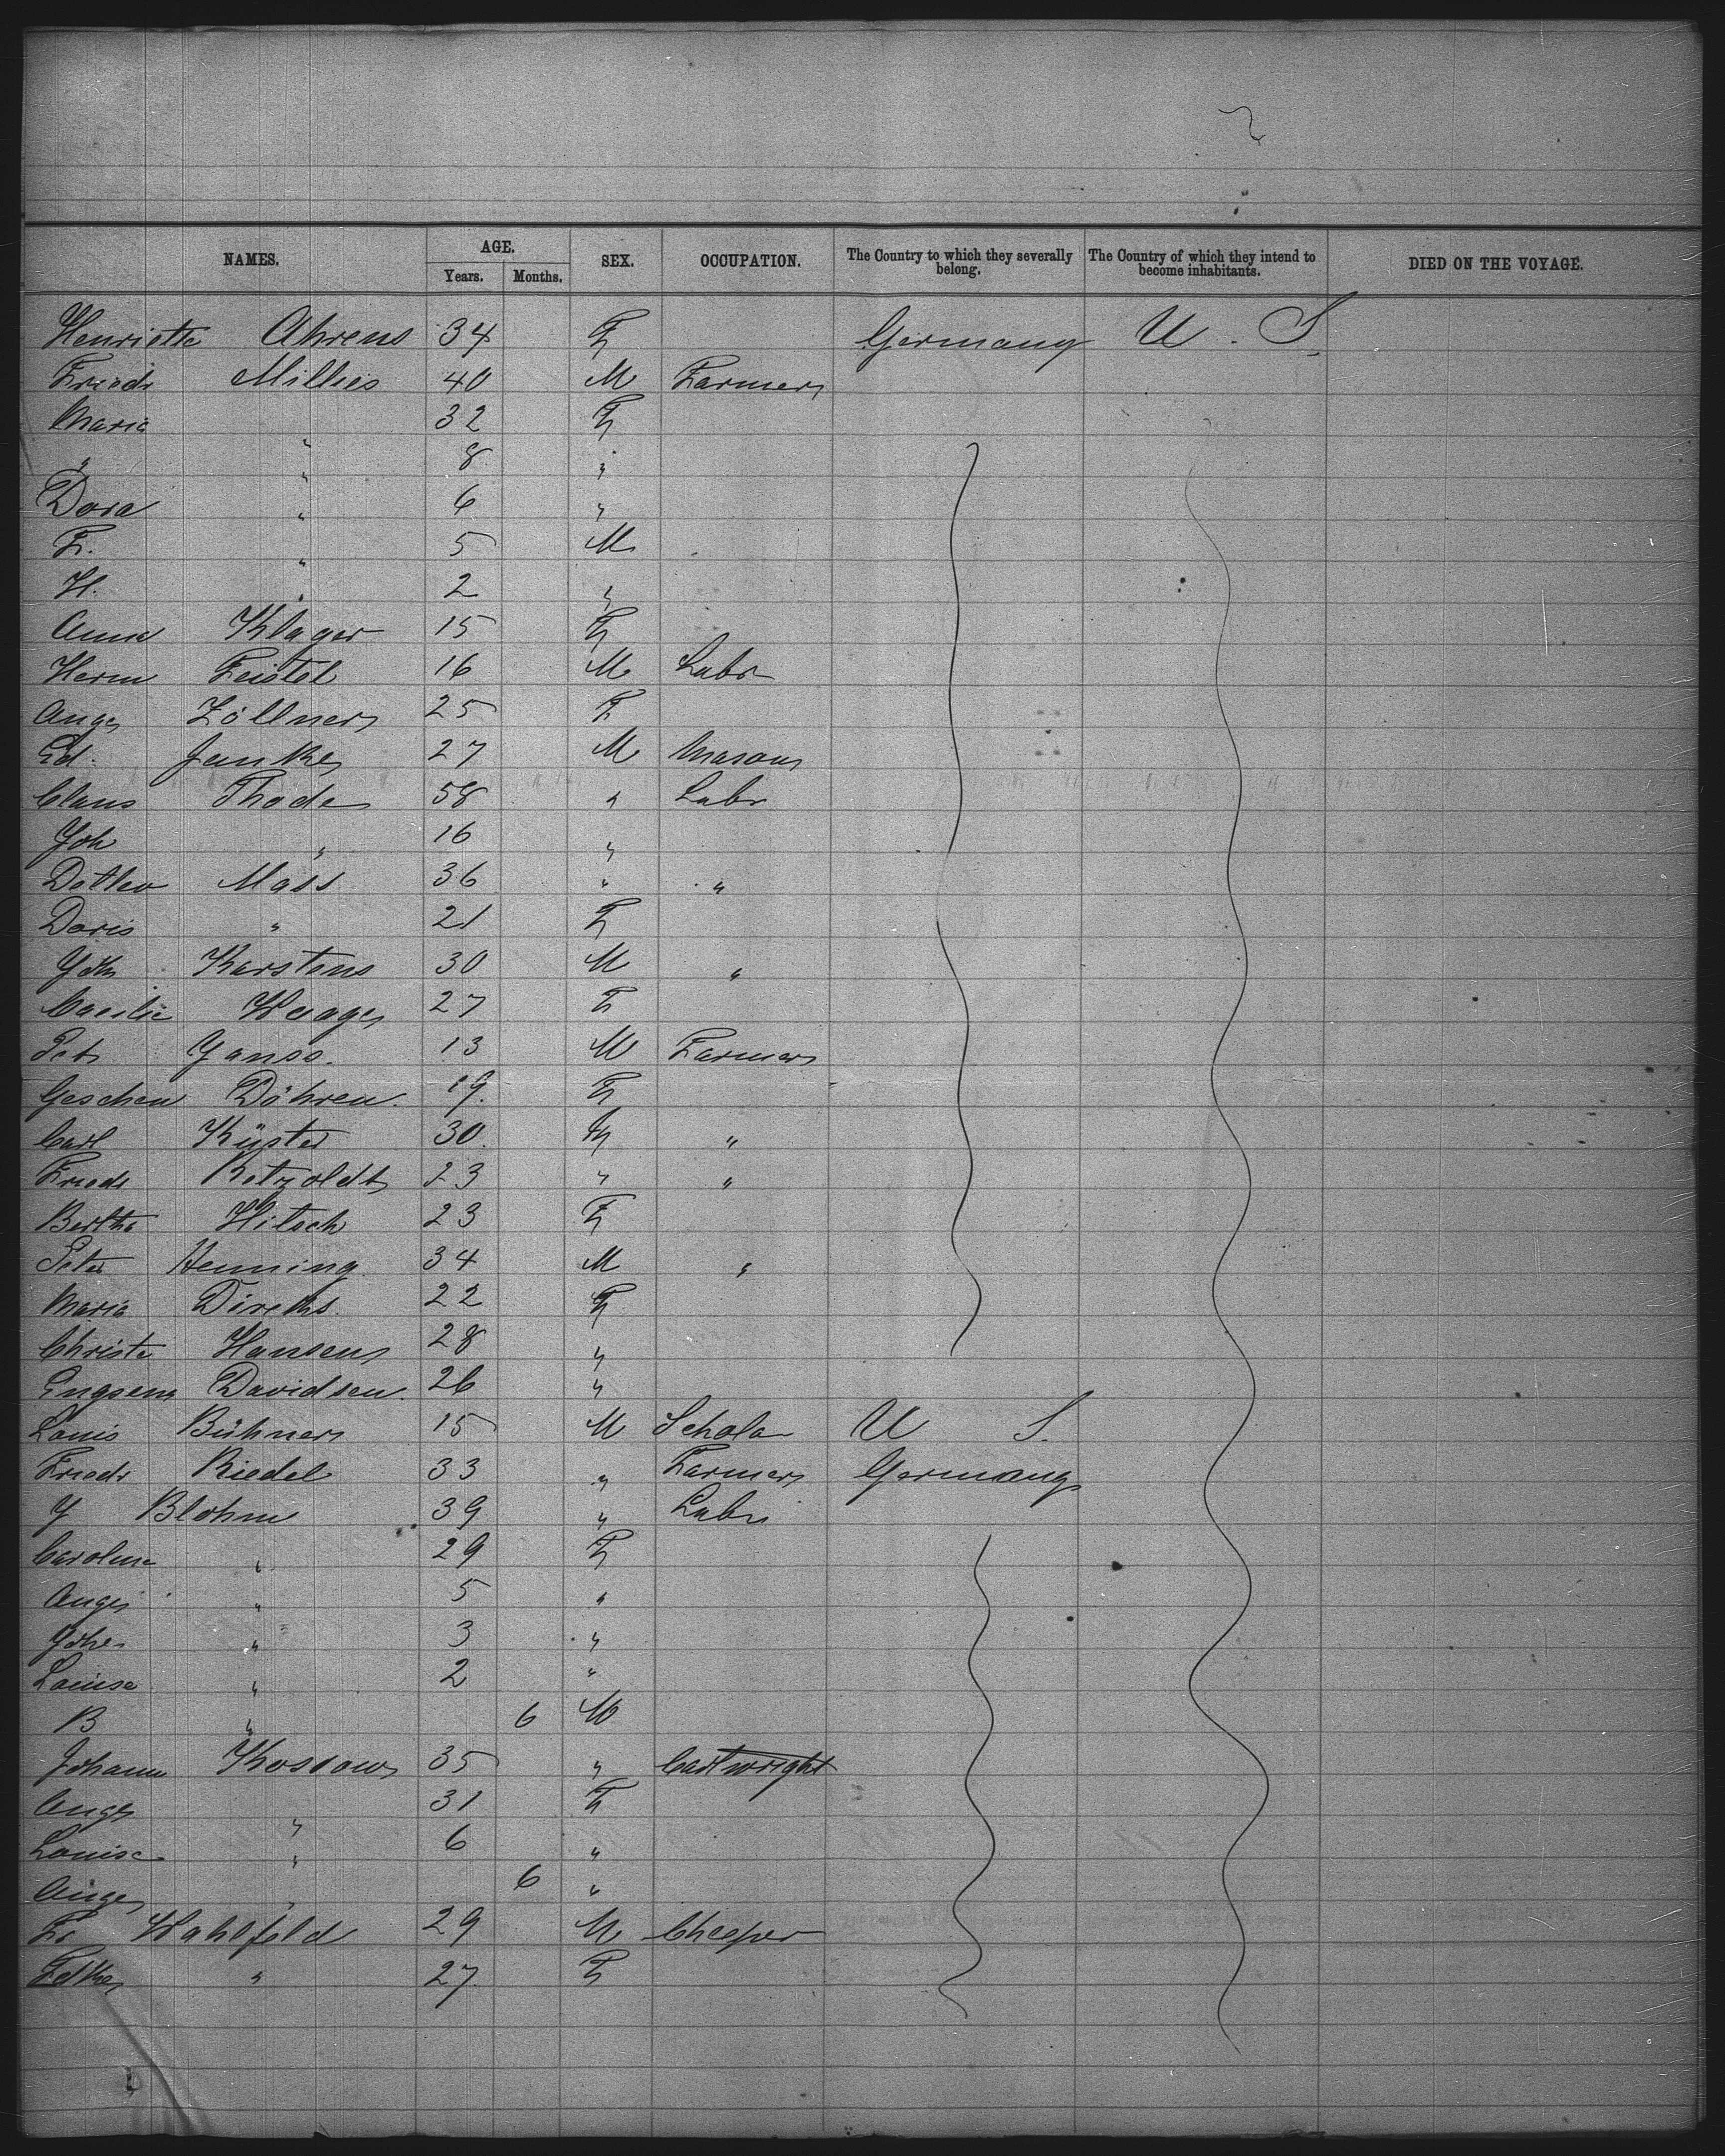 NAMES. AGE. SEX. OCCUPATION. The Country to which they severally belong. The Country of which they intend to become inhabitants. DIED ON THE VOYAGE.
Years. Months.
Henriette Ahrens 34 F Germany U. S.
Friedr Millies 40 M Farmer
Maria " 32 F
" " 8 "
Dora " 6 "
F. " 5 M
H. " 2 "
Anna Klager 15 F
Herm Feistel 16 M Labr
Auge Zöllner 25 F
Ed. Janke 27 M Mason
Claus Thode 58 " Labr
Joh " 16 "
Detlev Mass 36 " "
Doris " 21 F
Joh Karstens 30 M "
Caecilie Haage 27 F
Pet Janss. 13 M Farmer
Geschen Döhren. 19. F
Carl Küster 30. M "
Friedr Retzoldt 23 " "
Bertha Hitsch 23 F
Peter Henning 34 M "
Maria Direks. 22 F
Christe Hansen 28 "
Davidsen. 26 "
Louis Bühner 15 M Schola U S.
Friedr Riedel 33 " Farmer Germany
J Blohm 39 " Labr
Caroline " 29 F
Auge " 5 "
Johe " 3 "
Louise " 2 "
B " 6 M
Johann Kossow 35 " Cartwright
Auge " 31 F
Louise " 6 "
Auge " 6 "
Fr Wahlfeld 29 M
Elke " 27. F